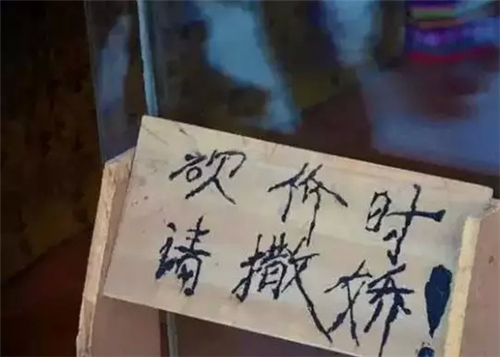 砍价时
请撒娇！